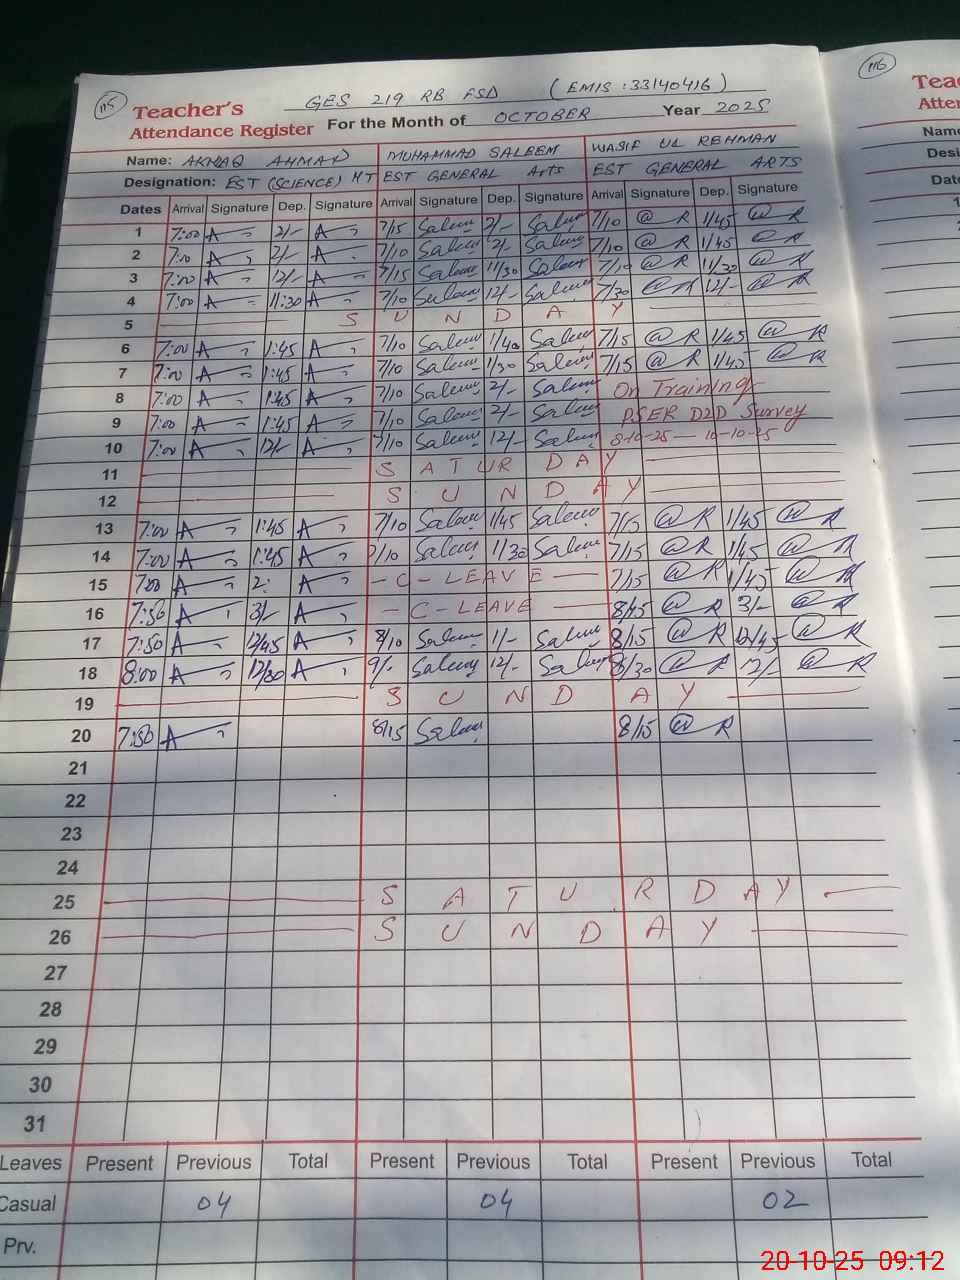 115
116
GES 219 RB FSD (EMIS:33140416)
Teacher's
Attendance Register For the Month of OCTOBER Year 2025
Name: AKHAQ AHMAD MUHAMMAD SALEEM WASIF UL REHMAN
Designation: EST (SCIENCE) MT EST GENERAL Arts EST GENERAL ARTS
Dates Arrival Signature Dep. Signature Arrival Signature Dep. Signature Arrival Signature Dep. Signature
1 7:00 A 2/- A 7/15 Saleem 2/- Saleem 7/10 @ R 1/45 @ R
2 7:00 A 2/- A 7/10 Saleem 2/- Saleem 7/10 @ R 1/45 @ R
3 7:00 A 12/- A 7/15 Saleem 11/30 Saleem 7/10 @ R 11/30 @ R
4 7:00 A 11:30 A 7/10 Saleem 12/- Saleem 7/30 @ R 12/- @ R
5 SUNDAY
6 7:00 A 1:45 A 7/10 Saleem 1/40 Saleem 7/15 @ R 1/45 @ R
7 7:00 A 1:45 A 7/10 Saleem 1/30 Saleem 7/15 @ R 1/45 @ R
8 7:00 A 1:45 A 7/10 Saleem 2/- Saleem On Training
9 7:00 A 1:45 A 7/10 Saleem 2/- Saleem PSER D2D Survey
10 7:00 A 12/- A 7/10 Saleem 12/- Saleem 8-10-25 — 10-10-25
11 SATURDAY
12 SUNDAY
13 7:00 A 1:45 A 7/10 Saleem 1/45 Saleem 7/15 @ R 1/45 @ R
14 7:00 A 1:45 A 7/10 Saleem 1/30 Saleem 7/15 @ R 1/45 @ R
15 7:00 A 2: A - C - LEAVE — 7/15 @ R 1/45 @ R
16 7:50 A 3/- A - C - LEAVE — 8/15 @ R 3/- @ R
17 7:50 A 12/45 A 8/10 Saleem 1/- Saleem 8/15 @ R 12/45 @ R
18 8:00 A 12/30 A 9/- Saleem 12/- Saleem 8/30 @ R 12/- @ R
19 SUNDAY
20 7:50 A 8/15 Saleem 8/15 @ R
21
22
23
24
25 SATURDAY
26 SUNDAY
27
28
29
30
31
Leaves Present Previous Total Present Previous Total Present Previous Total
Casual 04 04 02
Prv.
Teac
Atten
Name
Desi
Date
20-10-25 09:12